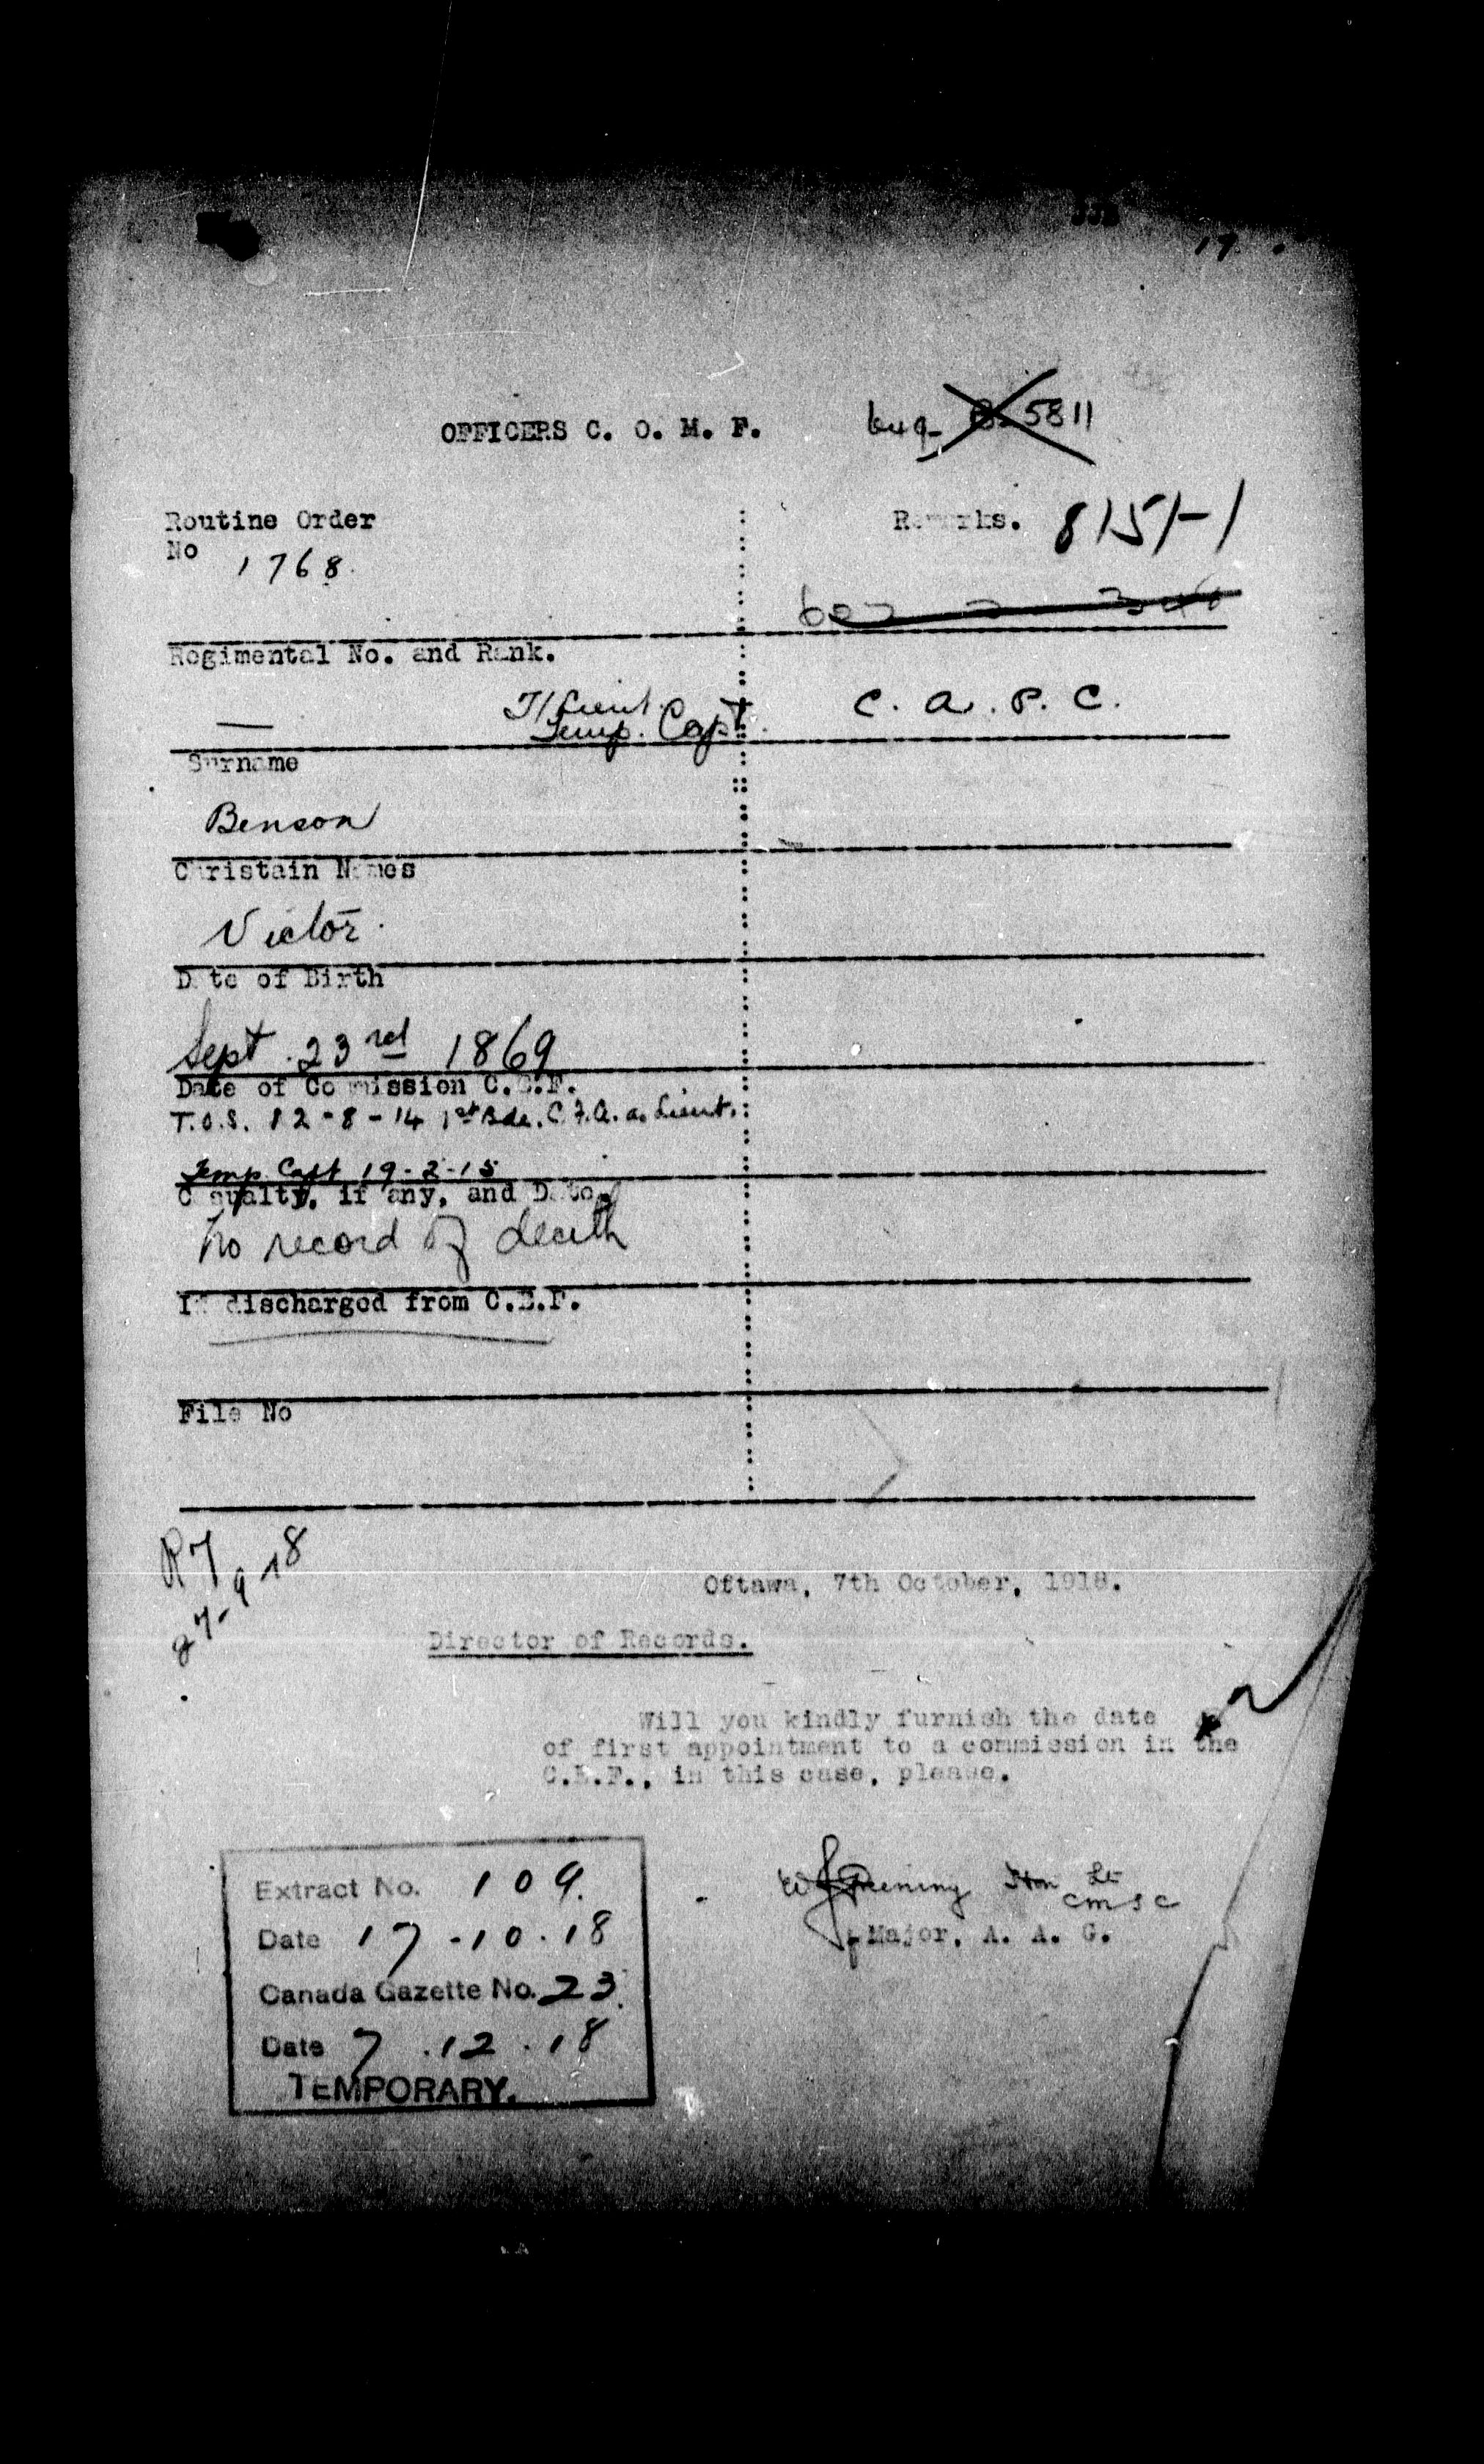 17
OFFICERS C. O. M. F.
649- B-5811
Routine Order
No 1768.
Remarks. 8151-1
Regimental No. and Rank.
— T/Lieut.
Temp. Capt.
C. A. P. C.
Surname
Benson
Christain Names
Victor.
Date of Birth
Sept. 23rd 1869
Date of Commission C.E.F.
T.O.S. 12-8-14 1st Bde. C.F.A. as Lieut.
Temp Capt 19-2-15
Casualty, if any, and Date
No record of death
If discharged from C.E.F.
File No
27-9-18
Ottawa, 7th October, 1918.
Director of Records.
Will you kindly furnish the date
of first appointment to a commission in the
C.E.F., in this case, please.
Hon Lt
CMSC
Major, A. A. G.
Extract No. 109.
Date 17-10-18
Canada Gazette No. 23.
Date 7.12.18
TEMPORARY.